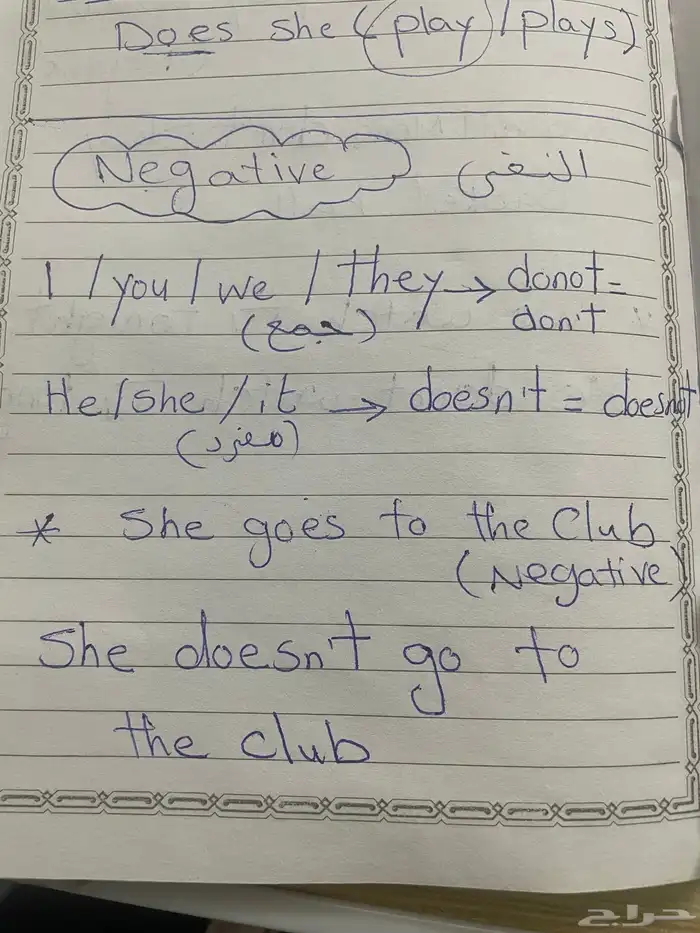 Does she (play / plays)
Negative النفى
I / you / we / they → donot =
(جمع) don't
He / she / it → doesn't = doesnot
(مفرد)
* She goes to the Club
(Negative)
She doesn't go to
the club
حراج